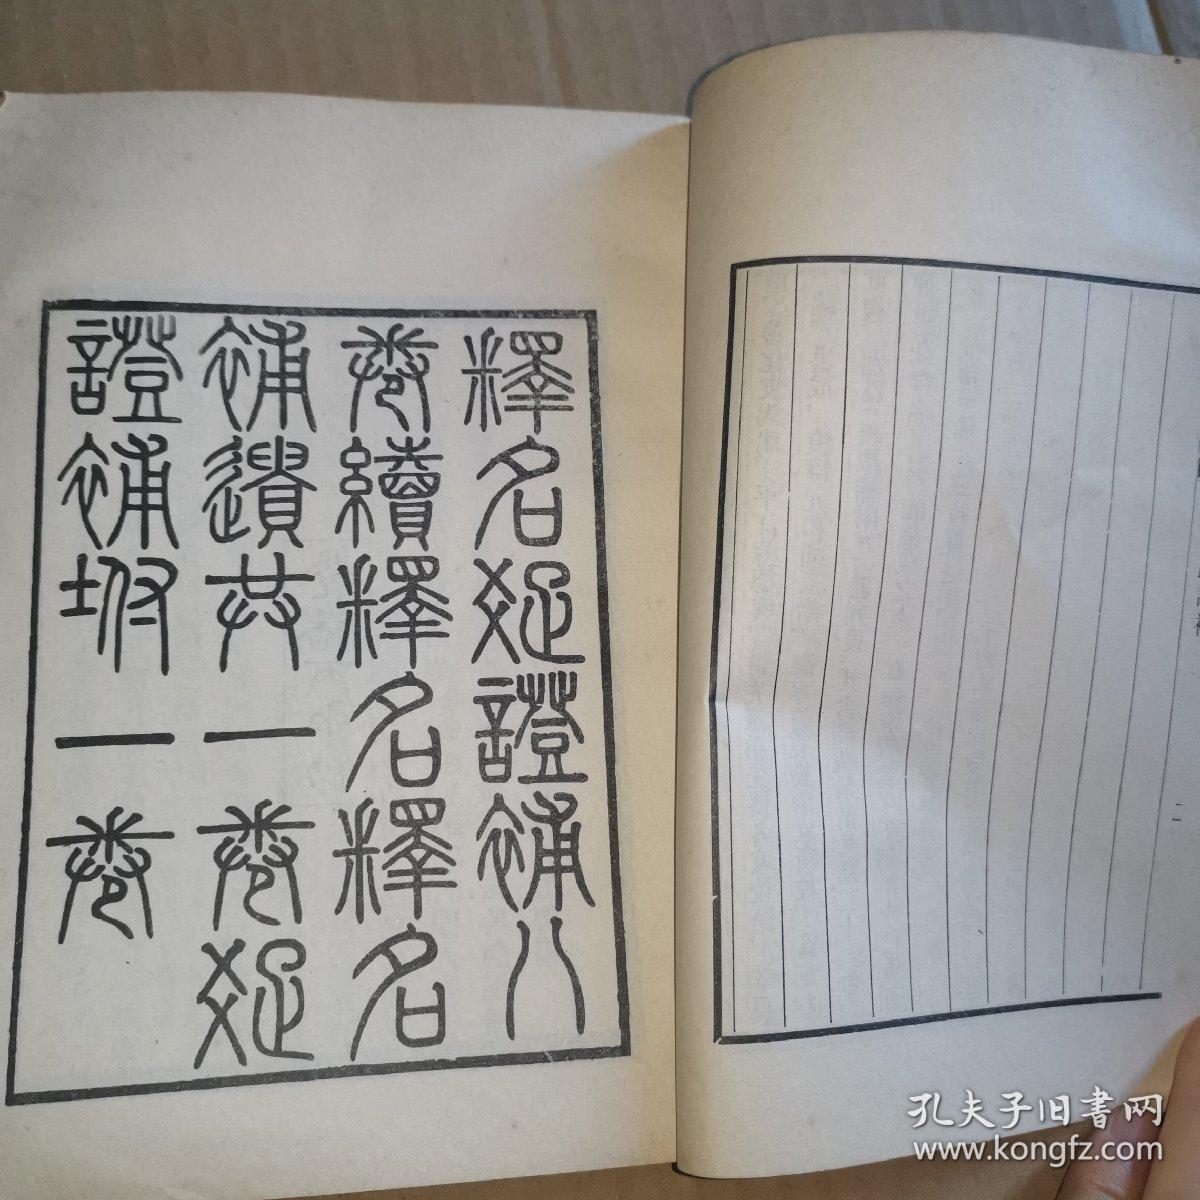 釋名疏證補八
卷續釋名釋名
補遺共一卷疏
證補坿一卷
二
孔夫子旧書网
www.kongfz.com